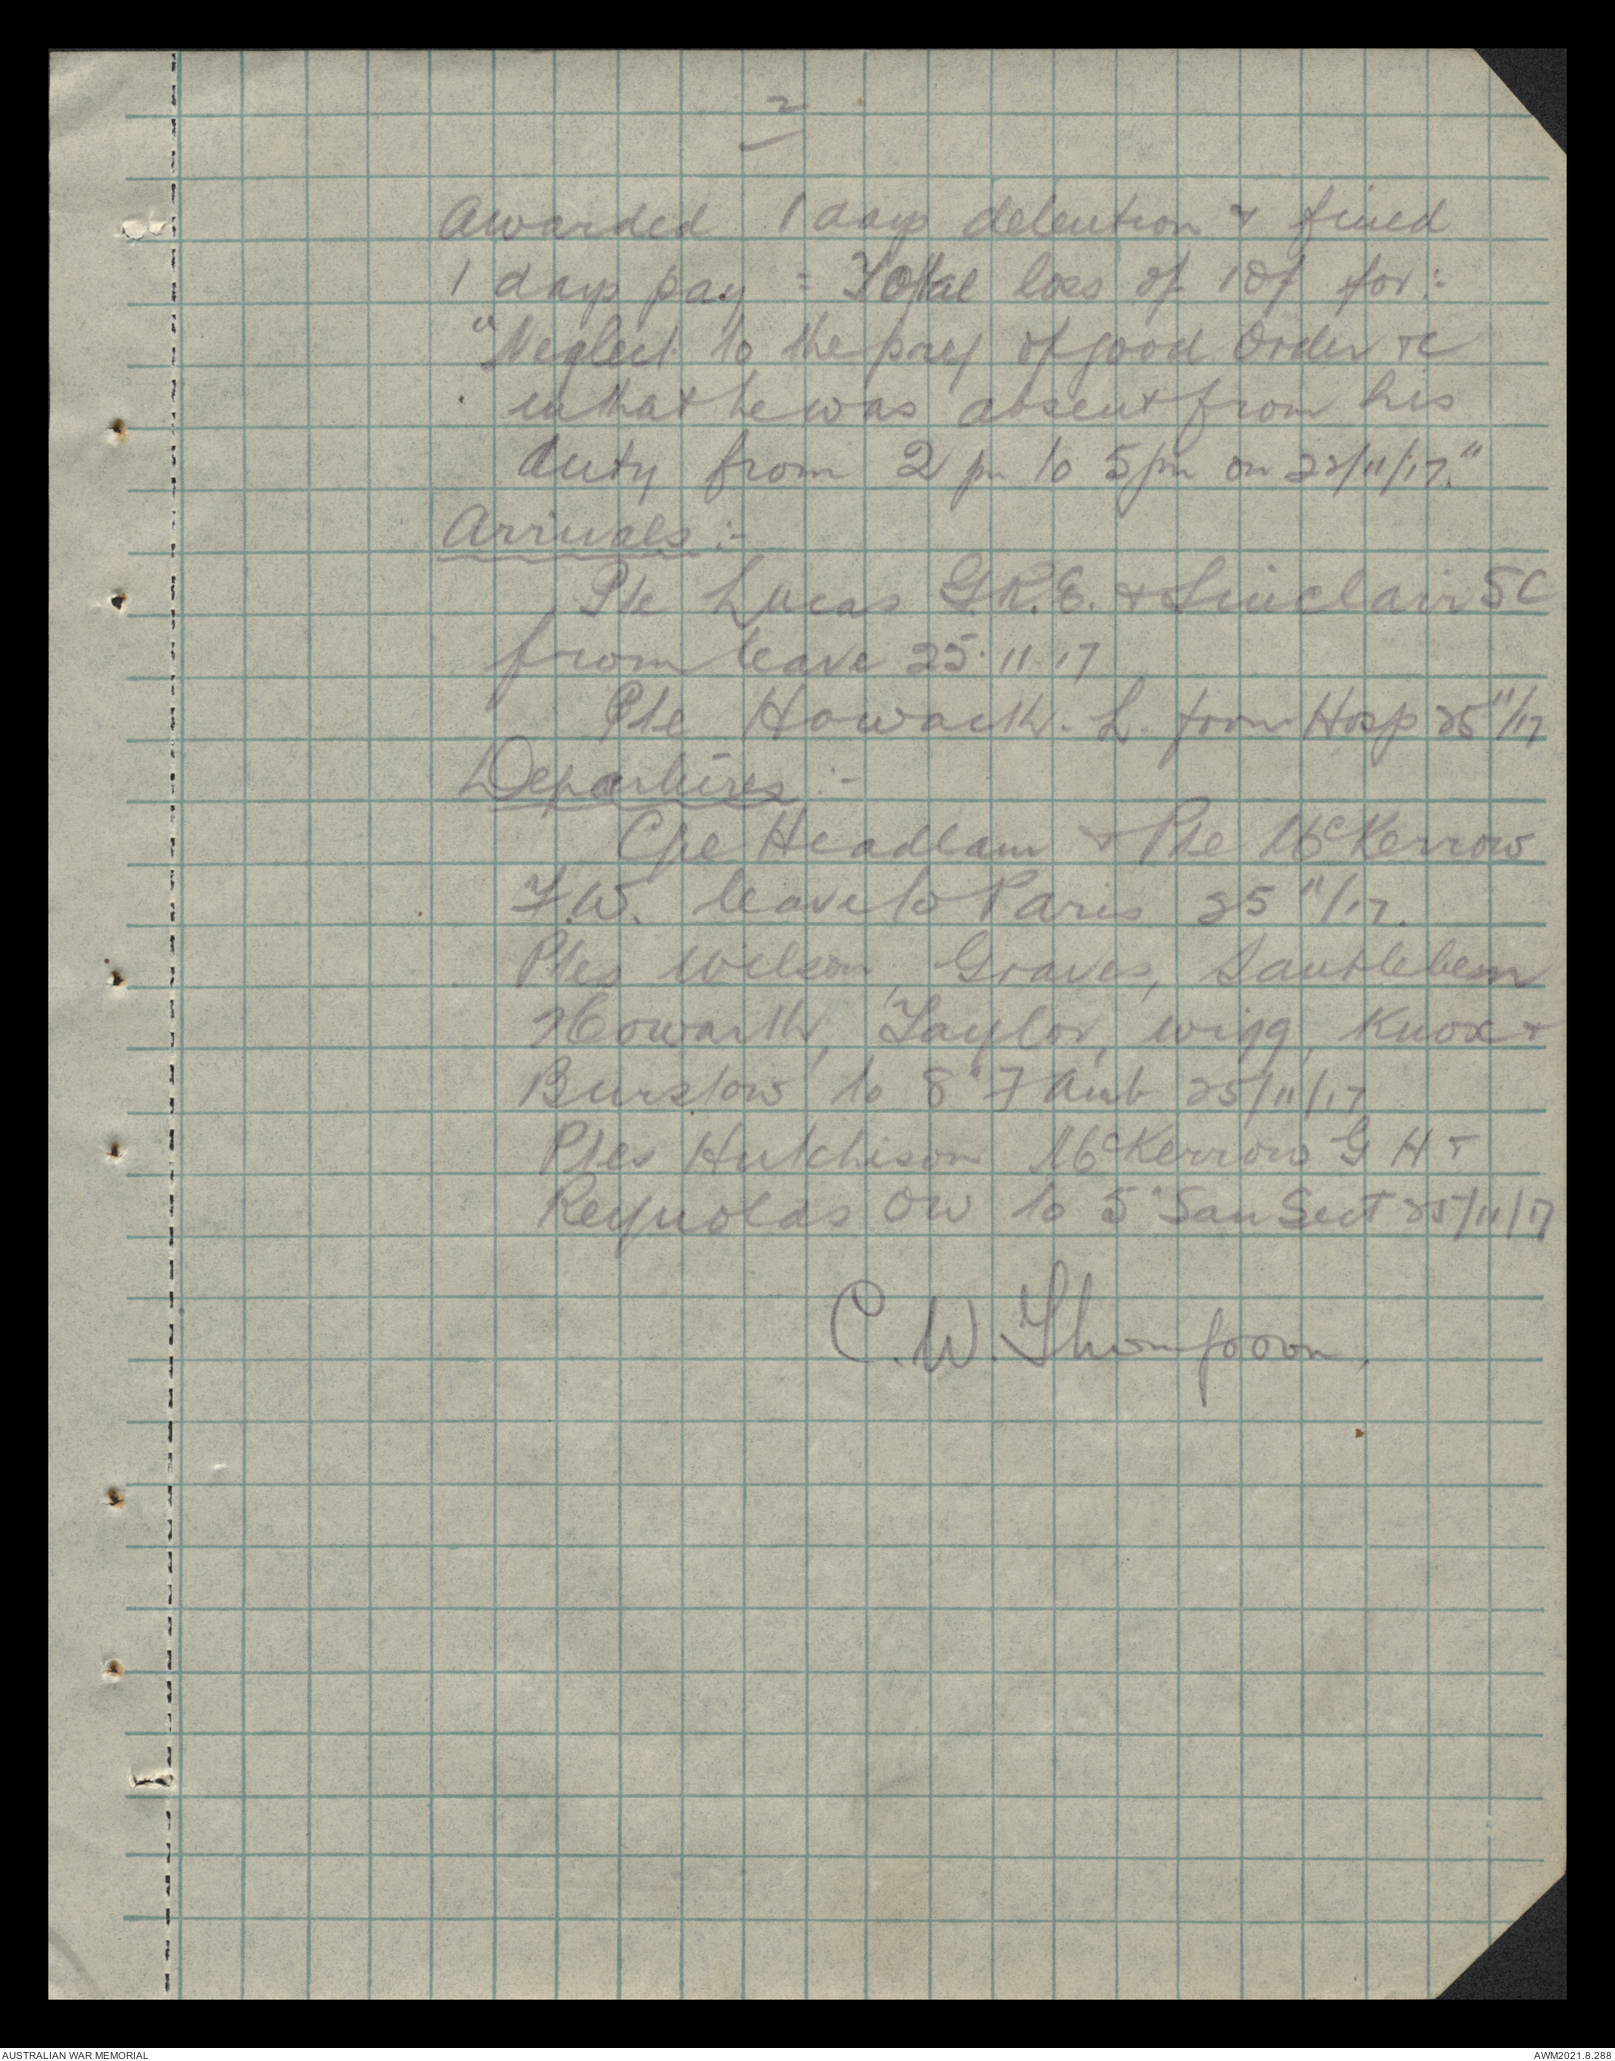 2
Awarded 1 days detention & fined
1 days pay = Total loss of 10/- for:-
"Neglect to the prej of good Order &c
in that he was absent from his
duty from 2 pm to 5 pm on 22/11/17."
Arrivals :-
Pte Lucas G.R.E. & Sinclair S C
from leave 25.11.17
Pte Howarth. L. from Hosp 25 11/17
Departures :-
Cpl Headlam & Pte McKerrow
F.W. leave to Paris 25 11/17.
Ptes Wilson, Graves,
Howarth, Taylor, Wigg, Knox &
Burstow to 8" F Amb 25/11/17
Ptes Hutchison McKerrow G H &
Reynolds OW to 5" San Sect 25/11/17
C.W. Thompson.
AUSTRALIAN WAR MEMORIAL
AWM2021.8.288